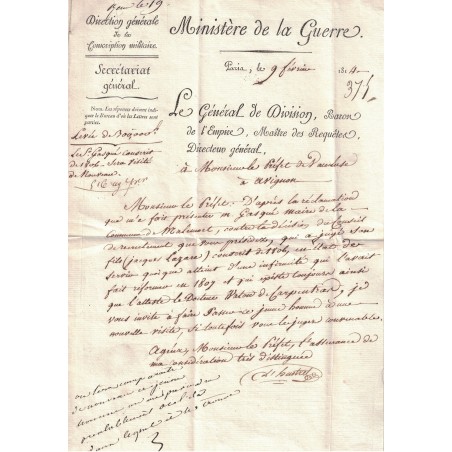 le 19
Direction générale
de la
Conscription militaire.
Secrétariat
général.
Nota. Les réponses doivent indi-
quer le Bureau d'où les Lettres sont
parties.
Levée de
Le Sr. Gasqui conscrit
de 1806. Sera visité
de Nouveau.
Ministère de la Guerre.
Paris, le 9 février 1814.
374
Le Général de Division, Baron
de l'Empire, Maître des Requêtes,
Directeur général,
à Monsieur le Préfet de Vaucluse
à avignon
Monsieur le Préfet. D'après la réclamation
que m'a fait présenter M. Gasqui maire de la
commune de Malemort, contre la décision du Conseil
de recrutement que vous présidez, qui a jugé son
fils (jacques lazare) conscrit de 1806, en état de
servir quoique atteint d'une infirmité qui l'avait
fait réformer en 1807 et qui existe toujours ainsi
que l'atteste le Docteur Valon de Carpentras, je
vous invite à faire passer ce jeune homme à une
nouvelle visite, si toutefois vous le jugez convenable.
Agréez, Monsieur le Préfet, l'assurance de
ma considération très distinguée